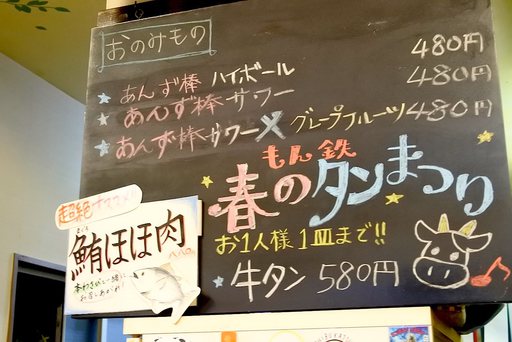 おのみもの
あんず棒 ハイボール 480円
あんず棒サワー 480円
あんず棒サワー×グレープフルーツ 480円
もん鉄
春のタンまつり
お1人様1皿まで!!
牛タン 580円
超絶オススメ
鮪ほほ肉
本わさびと一緒に
お召しあがれ!